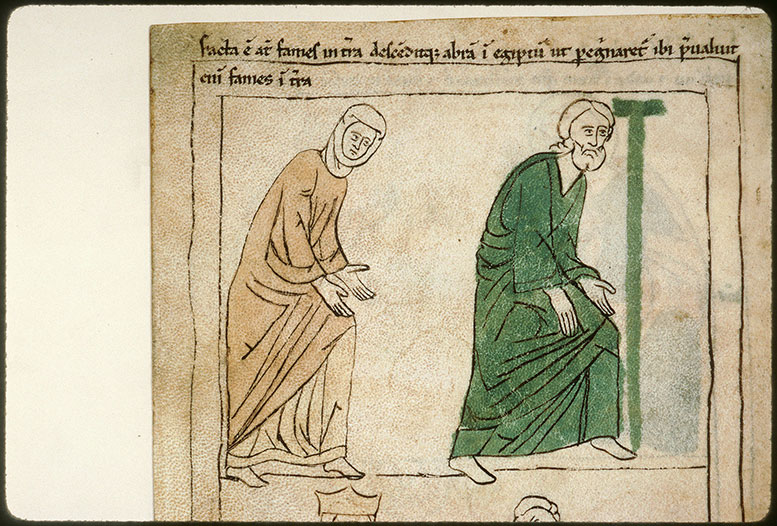 facta ē aūt fames in t̄ra descēditq; abrā ī egiptū ut peg̃naret̃ ibi p̃ualuit
eni fames ī t̃ra